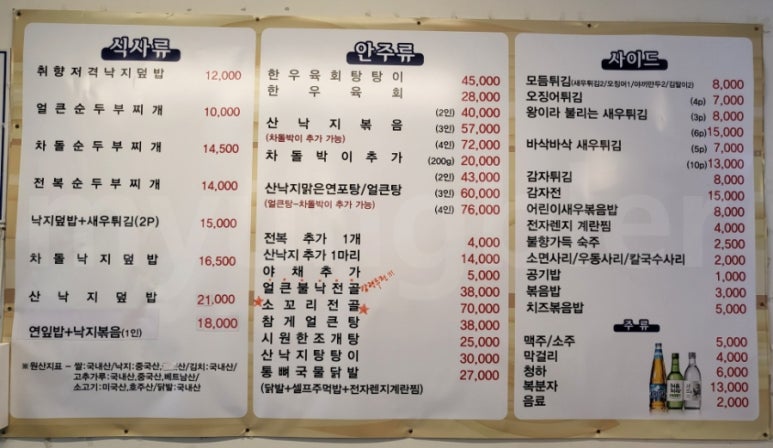 식사류
취향저격낙지덮밥 12,000
얼큰순두부찌개 10,000
차돌순두부찌개 14,500
전복순두부찌개 14,000
낙지덮밥+새우튀김(2P) 15,000
차돌낙지덮밥 16,500
산낙지덮밥 21,000
연잎밥+낙지볶음(1인) 18,000
※원산지표 - 쌀:국내산/낙지:중국산, 산/김치:국내산/
고추가루:국내산,중국산,베트남산/
소고기:미국산,호주산/닭발:국내산
안주류
한우육회탕탕이 45,000
한우육회 28,000
산낙지볶음 (2인) 40,000
(3인) 57,000
(차돌박이 추가 가능) (4인) 72,000
차돌박이추가 (200g) 20,000
산낙지맑은연포탕/얼큰탕 (2인) 43,000
(3인) 60,000
(얼큰탕-차돌박이 추가 가능) (4인) 76,000
전복 추가 1개 4,000
산낙지추가 1마리 14,000
야채추가 5,000
얼큰불낙전골 38,000
소꼬리전골 70,000
참게얼큰탕 38,000
시원한조개탕 25,000
산낙지탕탕이 30,000
통뼈국물닭발 27,000
(닭발+셀프주먹밥+전자렌지계란찜)
사이드
모듬튀김(새우튀김2/오징어1/야끼만두2/김말이2) 8,000
오징어튀김 (4p) 7,000
왕이라 불리는 새우튀김 (3p) 8,000
(6p) 15,000
바삭바삭 새우튀김 (5p) 7,000
(10p) 13,000
감자튀김 8,000
감자전 15,000
어린이새우볶음밥 8,000
전자렌지 계란찜 4,000
불향가득 숙주 2,500
소면사리/우동사리/칼국수사리 2,000
공기밥 1,000
볶음밥 3,000
치즈볶음밥 5,000
주류
맥주/소주 5,000
막걸리 4,000
청하 6,000
복분자 13,000
음료 2,000